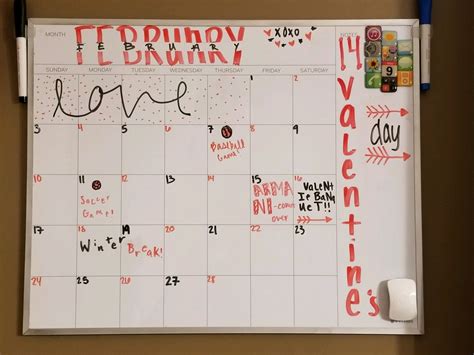 MONTH
FEBRUARY
FEBRUARY
xoxo
NOTES
SUNDAY MONDAY TUESDAY WEDNESDAY THURSDAY FRIDAY SATURDAY
love
1 2
3 4 5 6 7 8 9
Baseball
Game!
10 11 12 13 14 15 16
Soccer
Game!
ARMA
NI-coming
over
Valent
ie Banq
uet!!
17 18 19 20 21 22 23
Winter Break!
24 25 26 27 28
14
valentine's
day